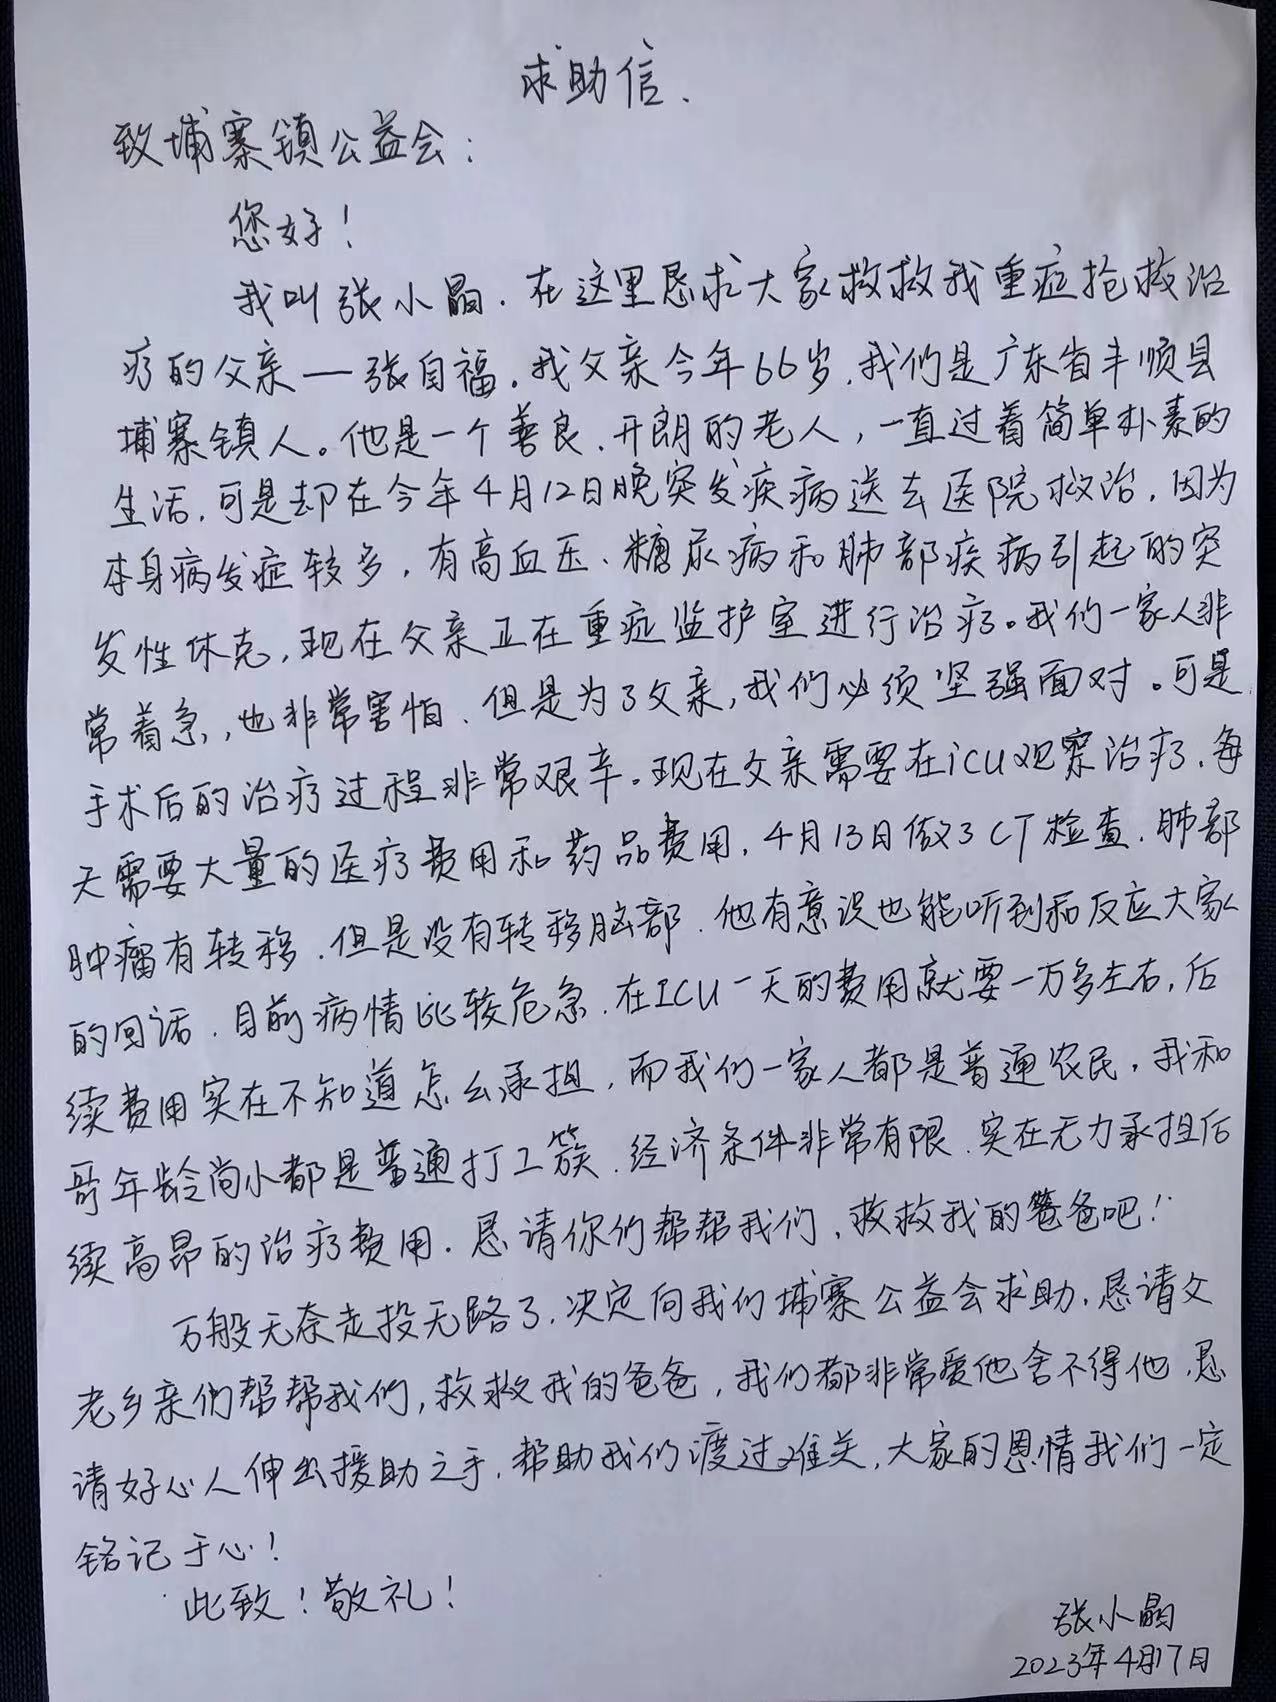 求助信、
致埔寨镇公益会：
您好！
我叫张小晶．在这里恳求大家救救我重症抢救治
疗的父亲一张自福．我父亲今年66岁．我们是广东省丰顺县
埔寨镇人。他是一个善良、开朗的老人，一直过着简单朴素的
生活．可是却在今年4月12日晚突发疾病送去医院救治．因为
本身病发症较多，有高血压、糖尿病和肺部疾病引起的突
发性休克，现在父亲正在重症监护室进行治疗。我们一家人非
常着急，也非常害怕．但是为了父亲，我们必须坚强面对。可是
手术后的治疗过程非常艰辛。现在父亲需要在icu观察治疗．每
天需要大量的医疗费用和药品费用．4月13日做了CT检查．肺部
肿瘤有转移．但是没有转移脑部．他有意识也能听到和反应大家
的回话．目前病情比较危急．在ICU一天的费用就要一万多左右，后
续费用实在不知道怎么承担，而我们一家人都是普通农民．我和
哥年龄尚小都是普通打工簇．经济条件非常有限．实在无力承担后
续高昂的治疗费用．恳请你们帮帮我们，救救我的爸爸吧！
万般无奈走投无路了．决定向我们埔寨公益会求助．恳请父
老乡亲们帮帮我们，救救我的爸爸，我们都非常爱他舍不得他．恳
请好心人伸出援助之手．帮助我们渡过难关，大家的恩情我们一定
铭记于心！
此致！敬礼！
张小晶
2023年4月17日